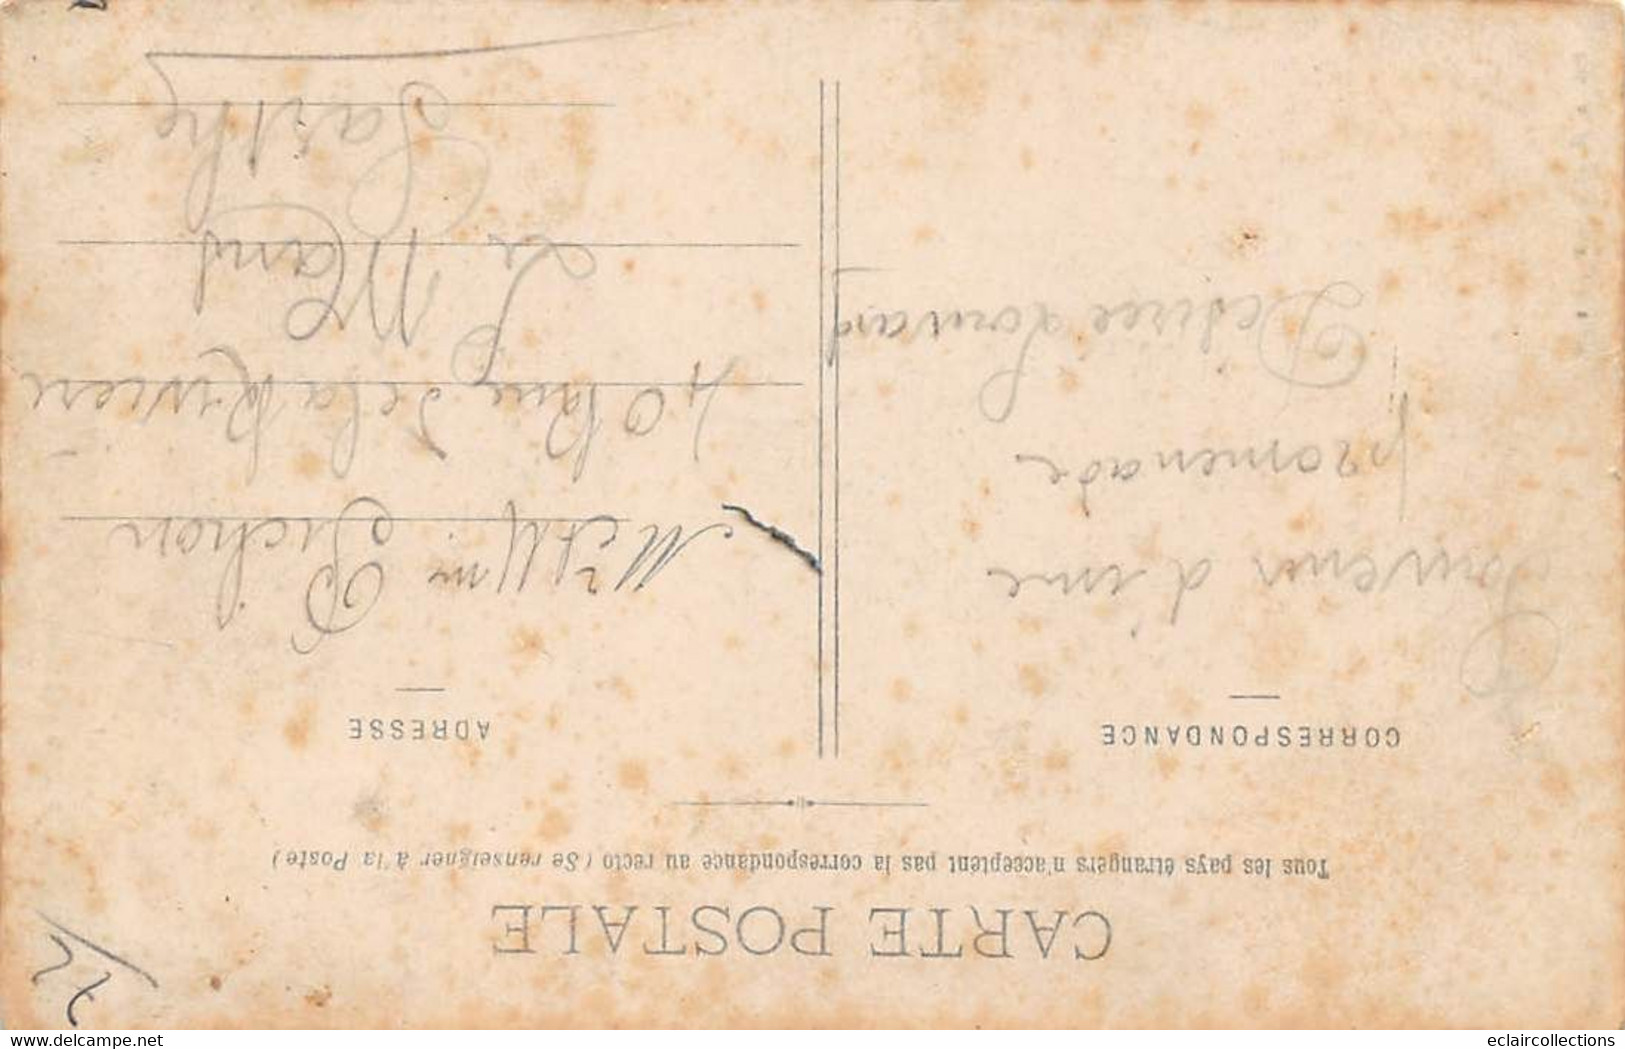 CARTE POSTALE
Tous les pays étrangers n'acceptent pas la correspondance au recto (Se renseigner à la Poste)
CORRESPONDANCE
Souvenir d'une
promenade
Desiree Louvard
ADRESSE
Mr et Mme Pichon
40 Rue de la Riviere
Le Mans
Sarthe
22
delcampe.net
eclaircollections